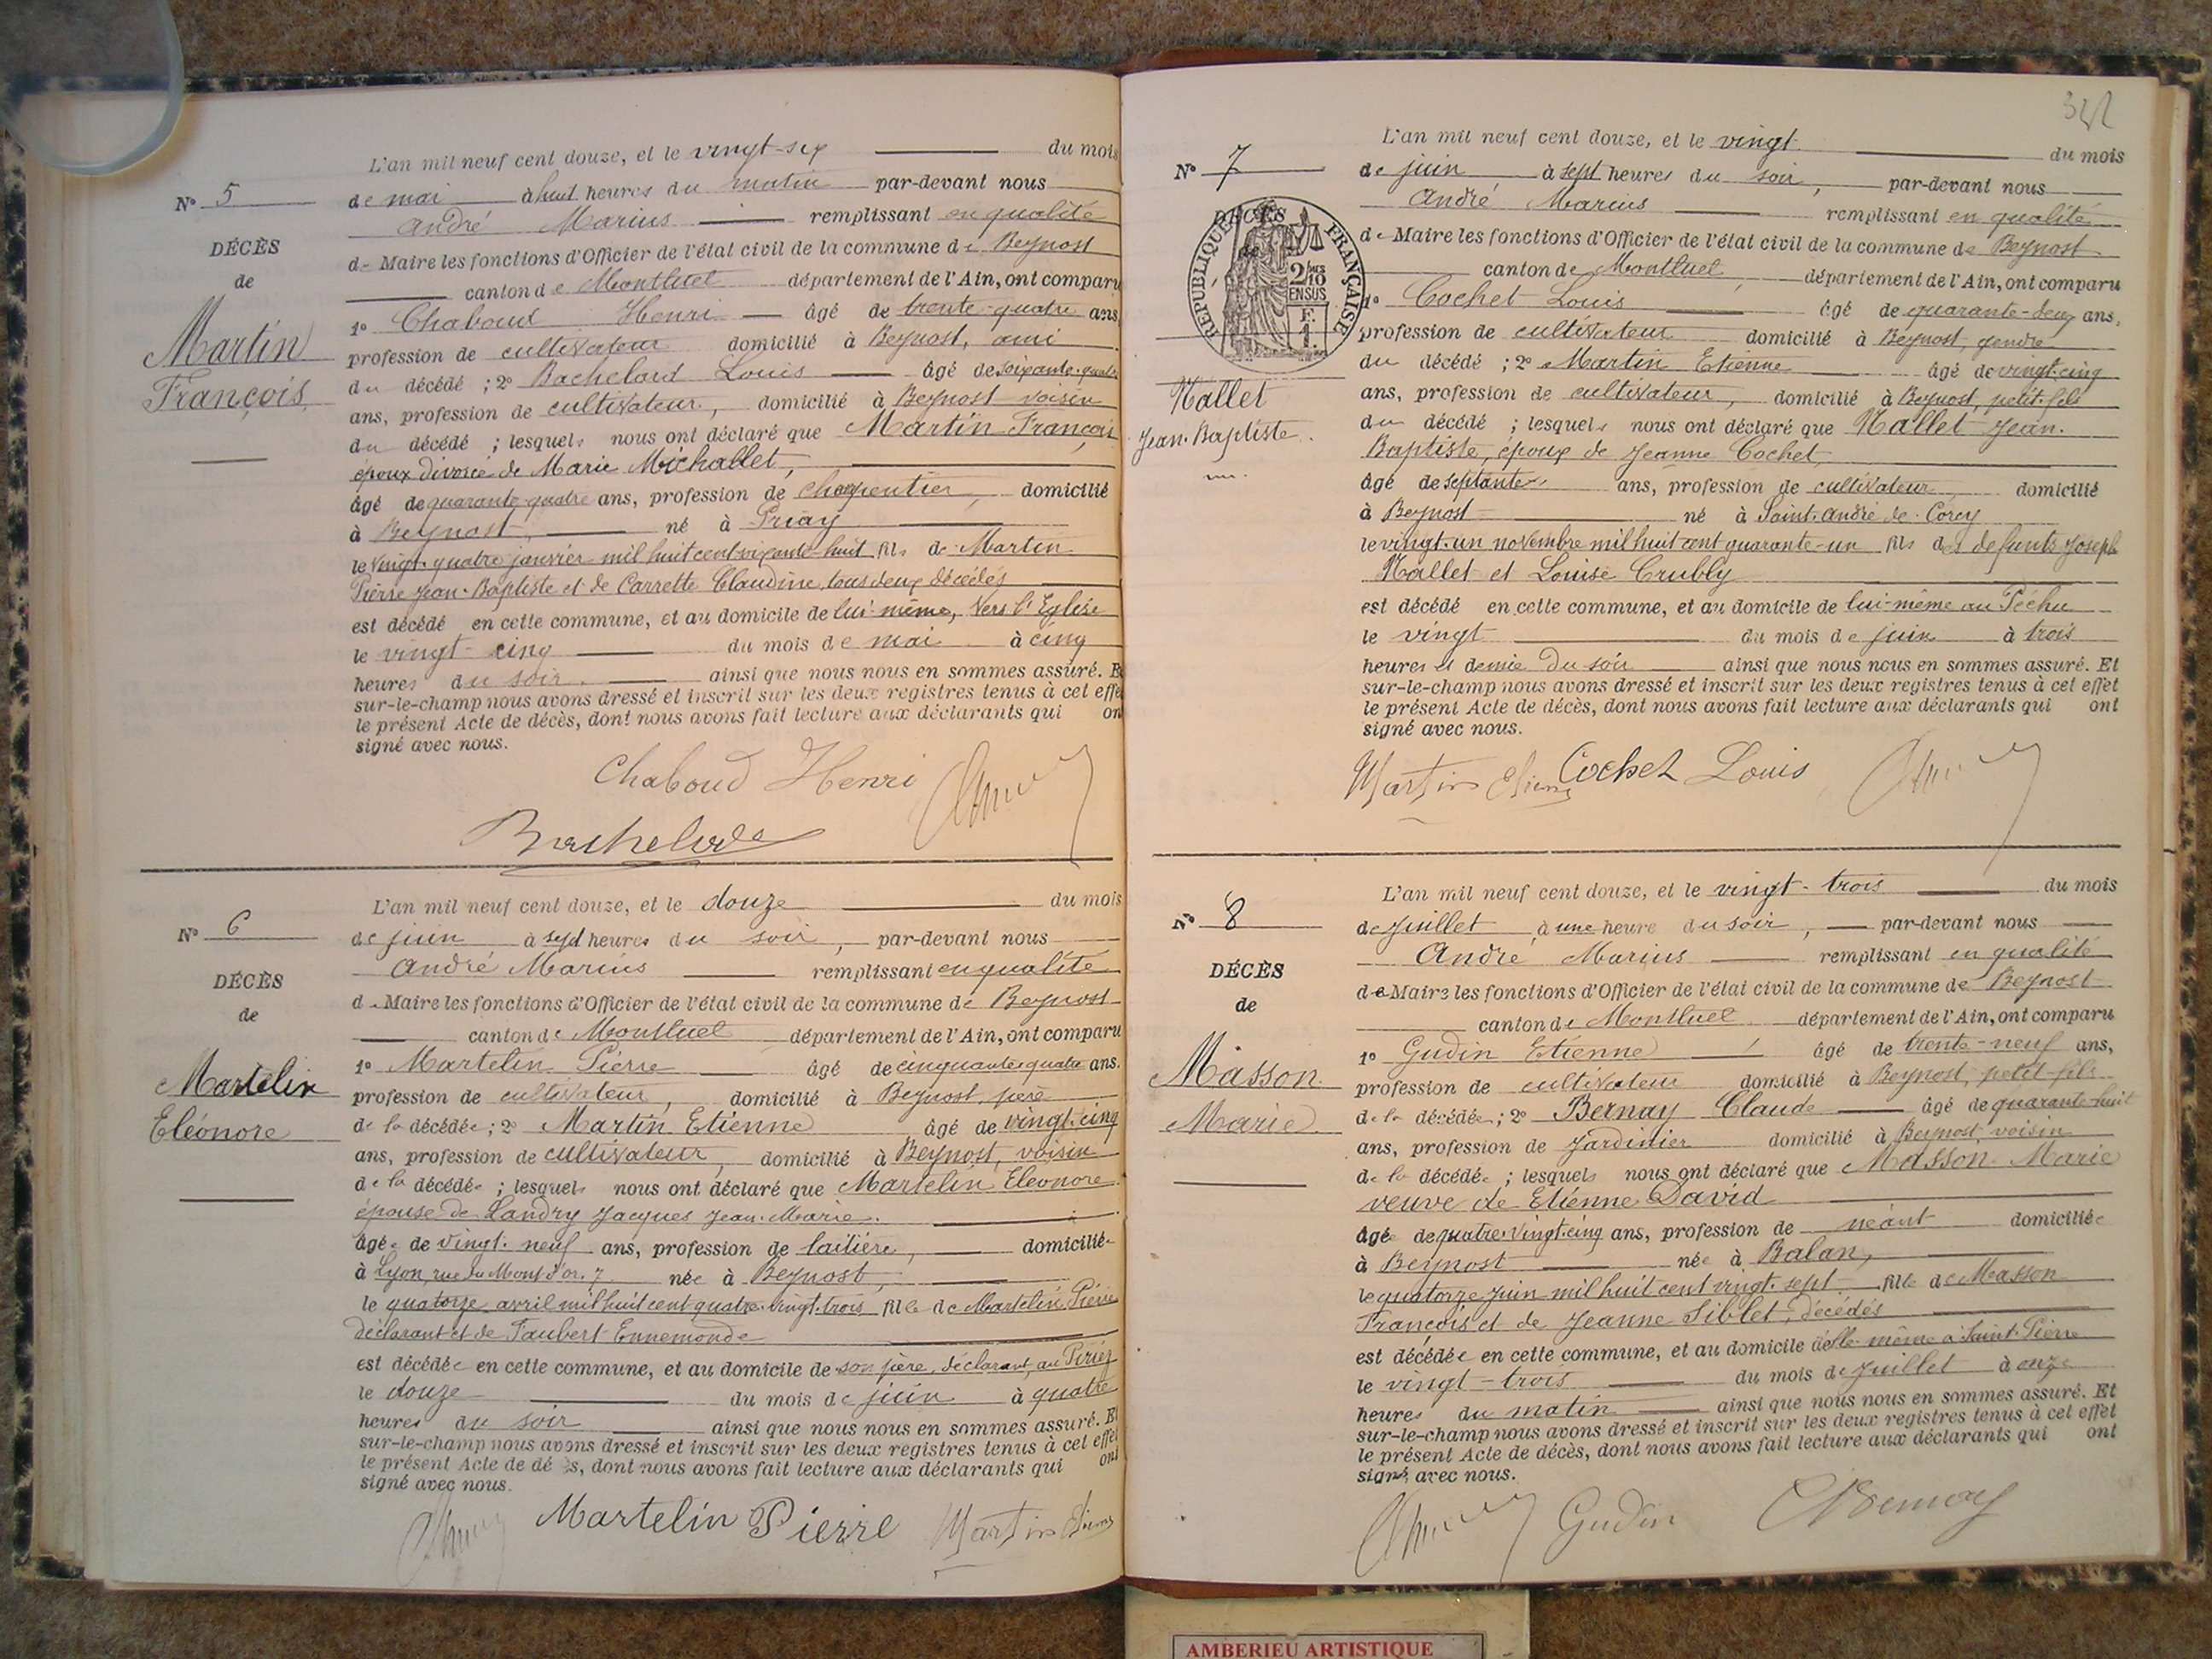 L'an mil neuf cent douze, et le vingt-six du mois
N° 5
de mai à huit heures du matin par-devant nous
André Marius remplissant en qualité
DÉCÈS
de Maire les fonctions d'Officier de l'état civil de la commune de Beynost
de
canton de Montluel département de l'Ain, ont comparu
1° Chaboud Henri âgé de trente-quatre ans,
Martin
profession de cultivateur domicilié à Beynost, ami
François
du décédé ; 2° Bachelard Louis âgé de soixante-quatre
ans, profession de cultivateur, domicilié à Beynost voisin
du décédé ; lesquels nous ont déclaré que Martin François
époux divorcé de Marie Michallet,
âgé de quarante-quatre ans, profession de charpentier, domicilié
à Beynost, né à Priay
le vingt-quatre janvier mil huit cent soixante-huit fils de Martin
Pierre Jean-Baptiste et de Carrette Claudine, tous deux décédés
est décédé en cette commune, et au domicile de lui-même, vers l'Eglise
le vingt-cinq du mois de mai à cinq
heures du soir. ainsi que nous nous en sommes assuré. Et
sur-le-champ nous avons dressé et inscrit sur les deux registres tenus à cet effe
le présent Acte de décès, dont nous avons fait lecture aux déclarants qui on
signé avec nous.
Chaboud Henri
L'an mil neuf cent douze, et le douze du mois
N° 6
de juin à sept heures du soir, par-devant nous
André Marius remplissant en qualité
DÉCÈS
de Maire les fonctions d'Officier de l'état civil de la commune de Beynost
de
canton de Montluel département de l'Ain, ont comparu
1° Martelin Pierre âgé de cinquante-quatre ans.
Martelin
profession de cultivateur, domicilié à Beynost, père
Eléonore
de la décédée ; 2° Martin Etienne âgé de vingt-cinq
ans, profession de cultivateur, domicilié à Beynost, voisin
de la décédée ; lesquels nous ont déclaré que Martelin Eléonore
épouse de Landry Jacques Jean-Marie.
âgée de vingt-neuf ans, profession de laitière, domiciliée
à Lyon, rue du Mont d'or, 7 née à Beynost,
le quatorze avril mil huit cent quatre-vingt-trois fille de Martelin Pierre
déclarant et de Faubert Ennemonde
est décédée en cette commune, et au domicile de son père, déclarant, au
le douze du mois de juin à quatre
heures du soir ainsi que nous nous en sommes assuré. Et
sur-le-champ nous avons dressé et inscrit sur les deux registres tenus à cet effet
le présent Acte de dé s, dont nous avons fait lecture aux déclarants qui ont
signé avec nous.
Martelin Pierre Martin Etienne
L'an mil neuf cent douze, et le vingt du mois
N° 7
de juin à sept heures du soir, par-devant nous
André Marius remplissant en qualité
DÉCÈS
RÉPUBLIQUE FRANÇAISE
2/10 EN SUS
F. 1.
de Maire les fonctions d'Officier de l'état civil de la commune de Beynost
canton de Montluel département de l'Ain, ont comparu
1° Cochet Louis âgé de quarante-deux ans,
profession de cultivateur domicilié à Beynost, gendre
du décédé ; 2° Martin Etienne âgé de vingt-cinq
Nallet
ans, profession de cultivateur, domicilié à Beynost, petit-fils
Jean-Baptiste.
du décédé ; lesquels nous ont déclaré que Nallet Jean-
Baptiste, époux de Jeanne Cochet,
âgé de septante ans, profession de cultivateur, domicilié
à Beynost né à Saint-André-de-Corcy
le vingt-un novembre mil huit cent quarante-un fils des défunts Joseph
Nallet et Louise Crubly
est décédé en cette commune, et au domicile de lui-même au Péchu
le vingt du mois de juin à trois
heures et demie du soir ainsi que nous nous en sommes assuré. Et
sur-le-champ nous avons dressé et inscrit sur les deux registres tenus à cet effet
le présent Acte de décès, dont nous avons fait lecture aux déclarants qui ont
signé avec nous.
Martin Etienne Cochet Louis
L'an mil neuf cent douze, et le vingt-trois du mois
N° 8
de juillet à une heure du soir, par-devant nous
André Marius remplissant en qualité
DÉCÈS
de Maire les fonctions d'Officier de l'état civil de la commune de Beynost
de
canton de Montluel département de l'Ain, ont comparu
1° Gudin Etienne âgé de trente-neuf ans,
Masson
profession de cultivateur domicilié à Beynost, petit-fils
Marie
de la décédée ; 2° Bernay Claude âgé de quarante-huit
ans, profession de Jardinier domicilié à Beynost, voisin
de la décédée ; lesquels nous ont déclaré que Masson Marie
veuve de Etienne David
âgée de quatre-vingt-cinq ans, profession de néant domiciliée
à Beynost née à Balan,
le quatorze juin mil huit cent vingt-sept fille de Masson
François et de Jeanne Siblet, décédés
est décédée en cette commune, et au domicile d'elle-même à Saint-Pierre
le vingt-trois du mois de juillet à onze
heures du matin ainsi que nous nous en sommes assuré. Et
sur-le-champ nous avons dressé et inscrit sur les deux registres tenus à cet effet
le présent Acte de décès, dont nous avons fait lecture aux déclarants qui ont
signé avec nous.
Gudin CBernay
AMBERIEU ARTISTIQUE